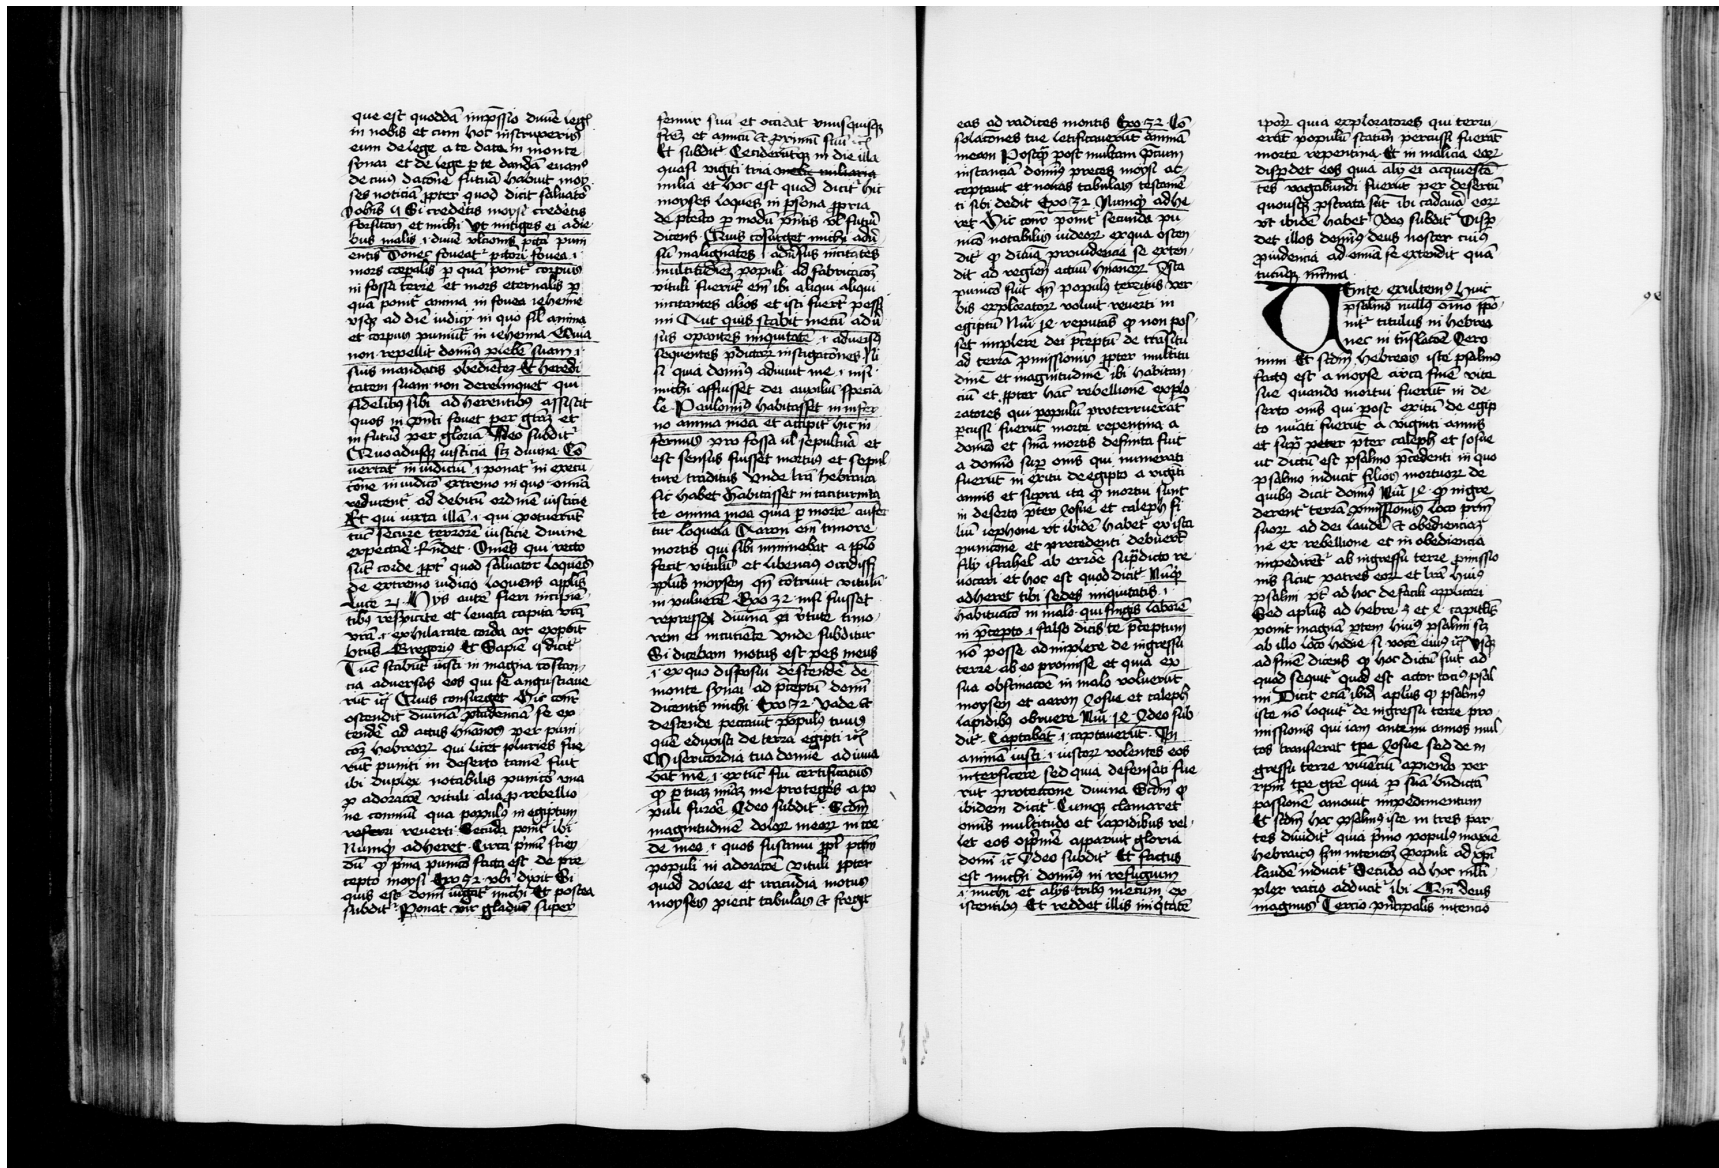 que est quoddā imp̄ssio diuīe leḡ
in nobis et cum hoc instruxeris
eum de lege a te data in monte
synai et de lege p te dandā euan
de cuius dacōne futurā habuit moy
ses noticiā ꝓpter quod dicit saluator
Johis Si credetis moysi credetis
forsitan et michi Vt mitiges ei a die
bus malis .i. diuīe vlcionis
entis Donec foueat᷑ pc̄cori fouea .i.
mors corꝑalis ꝑ quā ponit᷑ corpus
in fossa terre et mors eternalis ꝑ
quā ponit᷑ anima in fouea iehenne
vsqꝫ ad diē iudicij in quo sīl anima
et corpus puniūt᷑ in iehenna Quia
non repellit domin9 plebē suam .i.
suis mandatis obedietēꝫ Et heredi
tatem suam non derelinquet qui
fidelibꝫ sibi adherentibus assistit
quos in p̄nti fouet per gr̄aꝫ et
in futuro per gloriā Ideo subdit᷑
Quoadusqꝫ iusticia scꝫ diuina Cō
uertat᷑ in iudiciū .i. ponat᷑ in execu
cōne in iudicō extremo in quo omīa
reducent᷑ ad debitū ordinē iusticie
Et qui iuxta illā .i. qui potuerūt
tūc secure terrorē iusticie diuine
expectare Rn̄det Omēs qui recto
sūt corde ꝓpt᷑ quod saluator loquēs
de extremo iudicio loquens apl̄is
Luce 21 Hijs autē fieri incipiē
tibꝫ respicite et leuata capita vrā
vrā .i. exhilarate corda vt exponit
btūs Gregorius Et Sapiē 5 dicit᷑
Tūc stabūt iusti in magna constan
cia aduersus eos qui se angustiaue
rūt Quis consurget Hic conꝰ
ostendit diuinā prudenciā se ex
tendē ad actus hūanos per puni
coꝫ hebreoꝝ qui licet pluries fue
rūt puniti in deserto tamē fuit
ibi duplex notabilis punicō vna
ꝓ adoracōe vituli alia ꝓ rebellio
ne cōmuni qua populꝰ in egiptum
reuerti Secūda ponit᷑ ibi
Numqꝫ adheret Circa primū scien
dū ꝙ p̄ma punicō facta est de pre
cepto moysi Exo 32 vbi dixit Si
quis est domi iūgat᷑ michi Et postea
subdit᷑ Ponat vir gladium super
femur suū et occidat vnusquisqꝫ
frēꝫ et amicū et ꝓximū suū
Et subdit᷑ Cecideruntqꝫ in die illa
quasi viginti tria
milia et hoc est quod dicit᷑ hic
moyses loquēs in ꝑsona ꝓpria
de p̄terito ꝑ modū p̄ntis vel futuri
dicens Quis cōsurget michi adū
sū malignātes .i. aduersus incitātes
multitudinē populi ad fabricacōꝫ
vituli fuerūt em̄ ibi aliqui aliqui
incitantes alios et isti fuerūt pessi
mi Aut quis stabit mecū adū
sus opantes iniquitatē .i. aduersꝰ
sequentes p̄dictoꝝ instigacōnes Ni
si quia dominꝰ adiuuit me .i. nisi
michi affuisset dei auxiliū specia
le Paulominꝰ habitasset in infer
no anima mea et accipit᷑ hic in
fernus pro fossa vel sepultura et
est sensus fuisset mortuꝰ et sepul
ture traditus Vnde lr̄a hebraica
sic habet Habitasset in taciturnita
te anima mea quia ꝑ mortē aufer
tur loquela Aaron em̄ timore
mortis qui sibi imminebat a ꝓplo
fecit vitulū et libencius occidissꝫ
pplūs moysen qn̄ cōtriuit vitulū
in puluerē Exo 32 nisi fuisset
repressꝰ diuina ei v̄tute timo
rem ei incutiēte Vnde subditur
Si dicebam motus est pes meus
.i. ex quo disposui descendē de
monte synai ad p̄ceptū domi
dicentis michi Exo 32 Vade et
descende peccauit populus tuus
quē eduxisti de terra egipti
Misericordia tua domine adiuua
bat me .i. ex tūc fui certificatus
ꝙ ꝑ tuaꝫ mīaꝫ me protegēs a po
puli furore Ideo subdit᷑ Scdm̄
magnitudinē doloꝝ meoꝝ in cor
de meo .i. quos sustinui ꝓpt᷑ pctm̄
populi in adoracōe vituli ꝓpter
quod dolore et iracūdia motus
moyses ꝓiecit tabulas et fregit
eas ad radices montis Exo 32 Cō
solacōnes tue letificauerūt animā
meam Postqꝫ post multam p̄cum
instanciā dominꝰ preces moysi ac
ceptauit et nouas tabulas testamē
ti sibi dedit Exo 32 Numqꝫ adhe
ret Hic conꝰ ponit᷑ secunda pu
nicō notabilis iudeoꝝ ex qua osten
dit᷑ ꝙ diuina prouidencia se exten
dit ad regimē actuū hūanoꝝ Ista
punicō fuit qn̄ populꝰ territꝰ ver
bis exploratoꝝ voluit reuerti in
egiptū Nūi 14 reputās ꝙ non pos
set implere dei p̄ceptū de transitu
ad terrā ꝓmissionis ꝓpter multitu
dinē et magnitudinē ibi habitan
ciū et ꝓpter hāc rebellionē explo
ratores qui populū proterruerāt
ꝑcussi fuerūt morte repentina a
domīo et sn̄ia mortis definita fuit
a domīo super omīs qui numerati
fuerūt in exitu de egipto a viginti
annis et supra ita ꝙ mortui sunt
in deserto p̄ter Iosue et caleph fi
liū iephone vt ibidē habet᷑ ex ista
punicōne et precedenti debuerūt
filij israhel ab errore supradicto re
uocari et hoc est quod dicit᷑ Nūqꝫ
adheret tibi sedes iniquitatis .i.
habituacō in malo qui fingis laborē
in p̄cepto .i. falso dicis te p̄ceptum
nō posse adimplere de ingressu
terre ab eo promisse et quia ex
sua obstinacōe in malo voluerūt
moysen et aaron Iosue et caleph
lapidibus obruere Nūi 14 Ideo sub
dit᷑ Captabāt .i. captauerūt In
animā iusti .i. iustoꝝ volentes eos
interficere sed quia defensati fue
rūt protectione diuina Scdm̄ ꝙ
ibidem dicit᷑ Cumqꝫ clamaret
omīs multitudo et lapidibus vel
let eos opp̄mere apparuit gloria
domi Ideo subdit᷑ Et factus
est michi dominꝰ in refugium
.i. michi et alijs tribꝰ mecum ex
istentibꝰ Et reddet illis iniqͥtatē
ipoꝝ quia exploratores qui terru
erāt populū statim percussi fuerūt
morte repentina Et in malicia eoꝝ
disꝑdet eos quia alij ei acquiescē
tes vagabundi fuerūt per desertū
quousqꝫ ꝓstrata sūt ibi cadauera eoꝝ
vt ibidē habet᷑ Ideo subdit᷑ Disꝑ
det illos dominꝰ deus noster cuiꝰ
ꝓuidencia ad omīa se extendit quā
tūcūqꝫ minima
Venite exultemꝰ Huic
psalmo nullus omīo ppo
nit᷑ titulus in hebreo
nec in trāslacōe Iero
nimi Et scdm̄ hebreos iste psalmꝰ
factus est a moyse circa finē vite
sue quando mortui fuerūt in de
serto omīs qui post exitū de egip
to nūati fuerūt a viginti annis
et sup̄ p̄ter caleph et iosue
ut dictū est psalmo p̄cedenti in quo
psalmo inducit filios mortuoꝝ de
quibꝰ dicit dominꝰ Nūi 14 ꝙ ingre
derent᷑ terrā ꝓmissionis loco p̄rm
suoꝝ ad dei laudē et obedienciaꝫ
ne ex rebellione et inobediencia
impediret᷑ ab ingressu terre ꝓmissio
nis sicut patres eoꝝ et lr̄a huius
psalmi pt̄ ad hoc de facili applicari
Sed aplūs ad hebre 3 et 4 capitlis
ponit magnā ꝑtem huiꝰ psalmi scꝫ
ab illo loco hodie si vocē eius Vsqꝫ
ad finē dicens ꝙ hoc dictū fuit ad
quod sequit᷑ quod est actor tociꝰ psal
mi Dicit eciā ibid aplūs ꝙ psalmꝰ
iste nō loquit᷑ de ingressu terre pro
missionis qui iam ante mī annos mul
tos transierat tp̄e Iosue sed de in
gressu terre viuenciū apiendo per
xp̄m tp̄e gr̄e quia ꝑ suā bn̄dictā
passionē amouit impedimentum
Et scdm̄ hoc psalmꝰ iste in tres par
tes diuidit᷑ quia p̄mo populus maxīe
hebraicus scdm̄ intencōꝫ populi ad xp̄i
laudē inducit᷑ Secūdo ad hoc mlti
plex racio adducit᷑ ibi Qm̄ deus
magnus Tercio p̄ncipalis intencio